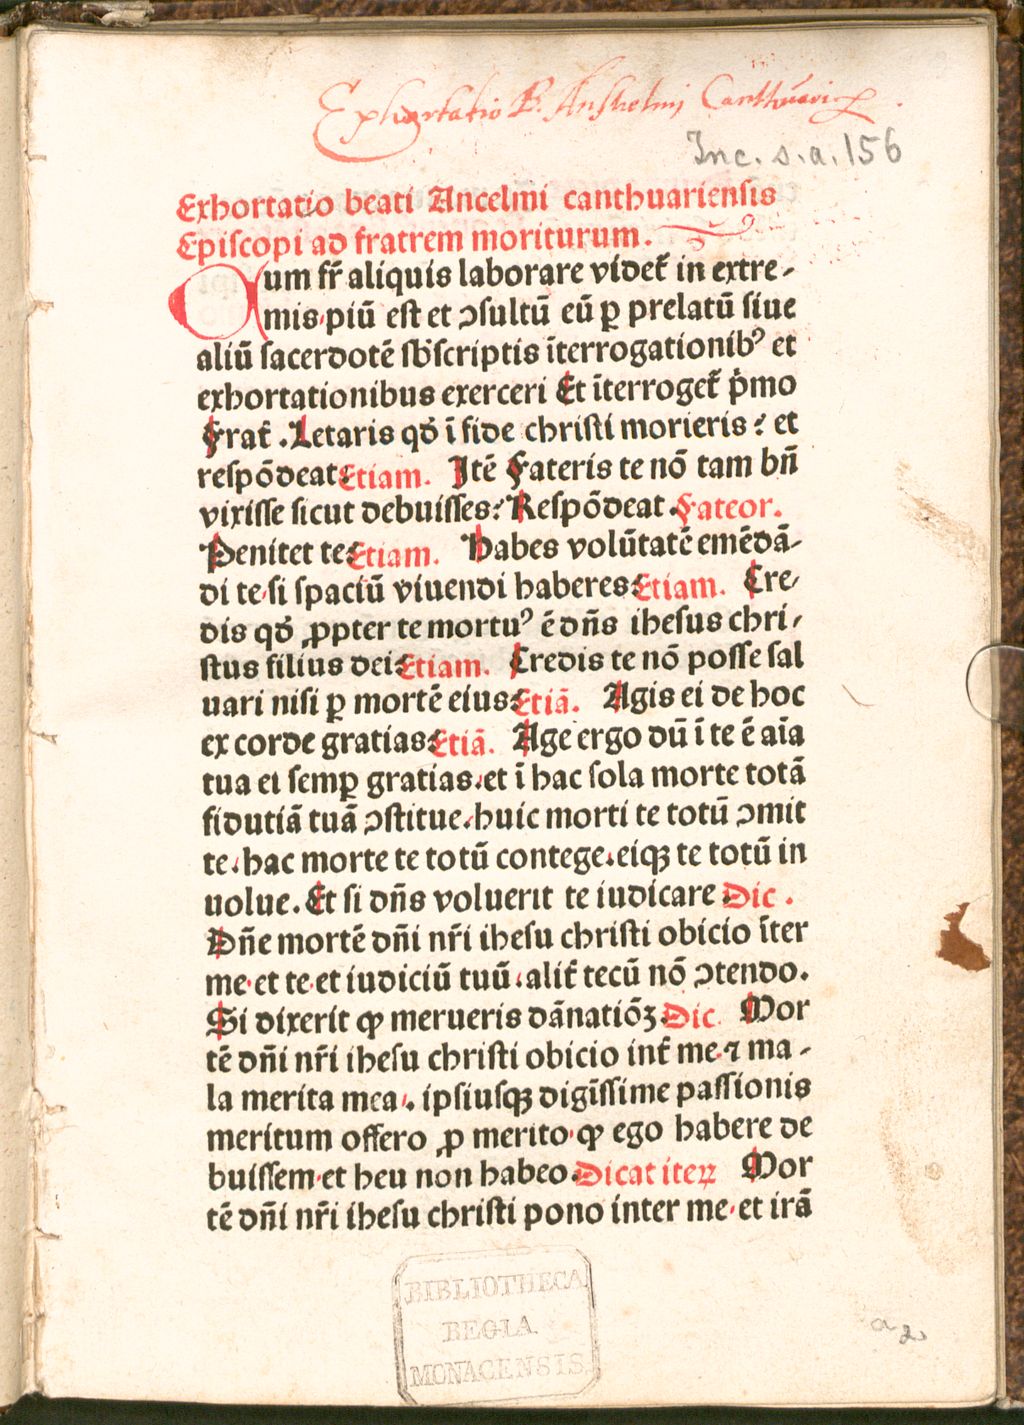 Exhortatio B. Anshelmi Canthuarien
Inc. s. a. 156
Exhortatio beati Ancelmi canthuariensis
Episcopi ad fratrem moriturum.
Cum fr̄ aliquis laborare videt᷑ in extre⸗
mis piū est et ↄsultū eū ꝑ prelatū siue
aliū sacerdotē sb̄scriptis īterrogationibꝰ et
exhortationibus exerceri Et īterroget᷑ p̄mo
Frat᷑. Letaris qđ ī fide christi morieris? et
respōdeat Etiam. Itē Fateris te nō tam bn̄
vixisse sicut debuisses? Respōdeat. Fateor.
Penitet te? Etiam. Habes volūtatē emēdā⸗
di te si spaciū viuendi haberes? Etiam. Cre⸗
dis qđ ꝓpter te mortuꝰ ē dn̄s ihesus chri⸗
stus filius dei? Etiam. Credis te nō posse sal
uari nisi ꝑ mortē eius? Etiā. Agis ei de hoc
ex corde gratias? Etiā. Age ergo dū ī te ē aīa
tua ei semꝑ gratias. et ī hac sola morte totā
fidutiā tuā ↄstitue. huic morti te totū ↄmit
te. hac morte te totū contege. eiqꝫ te totū in
uolue. Et si dn̄s voluerit te iudicare Dic.
Dn̄e mortē dn̄i nr̄i ihesu christi obicio īter
me et te et iudiciū tuū. alit᷑ tecū nō ↄtendo.
Si dixerit ꝙ merueris dānatiōꝫ. Dic. Mor
tē dn̄i nr̄i ihesu christi obicio int᷑ me ⁊ ma⸗
la merita mea. ipsiusqꝫ digīssime passionis
meritum offero ꝓ merito ꝙ ego habere de
buissem et heu non habeo. Dicat iteꝝ Mor
tē dn̄i nr̄i ihesu christi pono inter me et irā
BIBLIOTHECA
REGIA
MONACENSIS
a 2